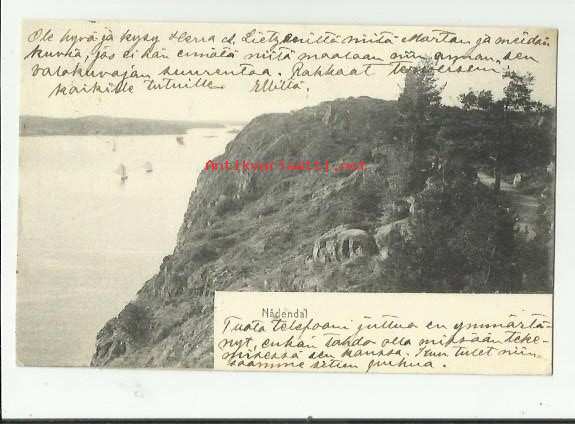 Ole hyvä ja kysy Herra Lietzeniltä mitä Martan ja meidän
kuvia, jos ei hän ennätä niitä maalaan niin annan sen
valokuvaajan suurentaa. Rakkaat terveiseni
kaikille tutuille Elliltä.
Antikvariaatti.net
Nådendal
Tuota telefooni juttua en ymmärtä-
nyt, enhän tahdo olla missään teke-
misessä sen kanssa. Kun tulet niin
saamme sitten puhua.